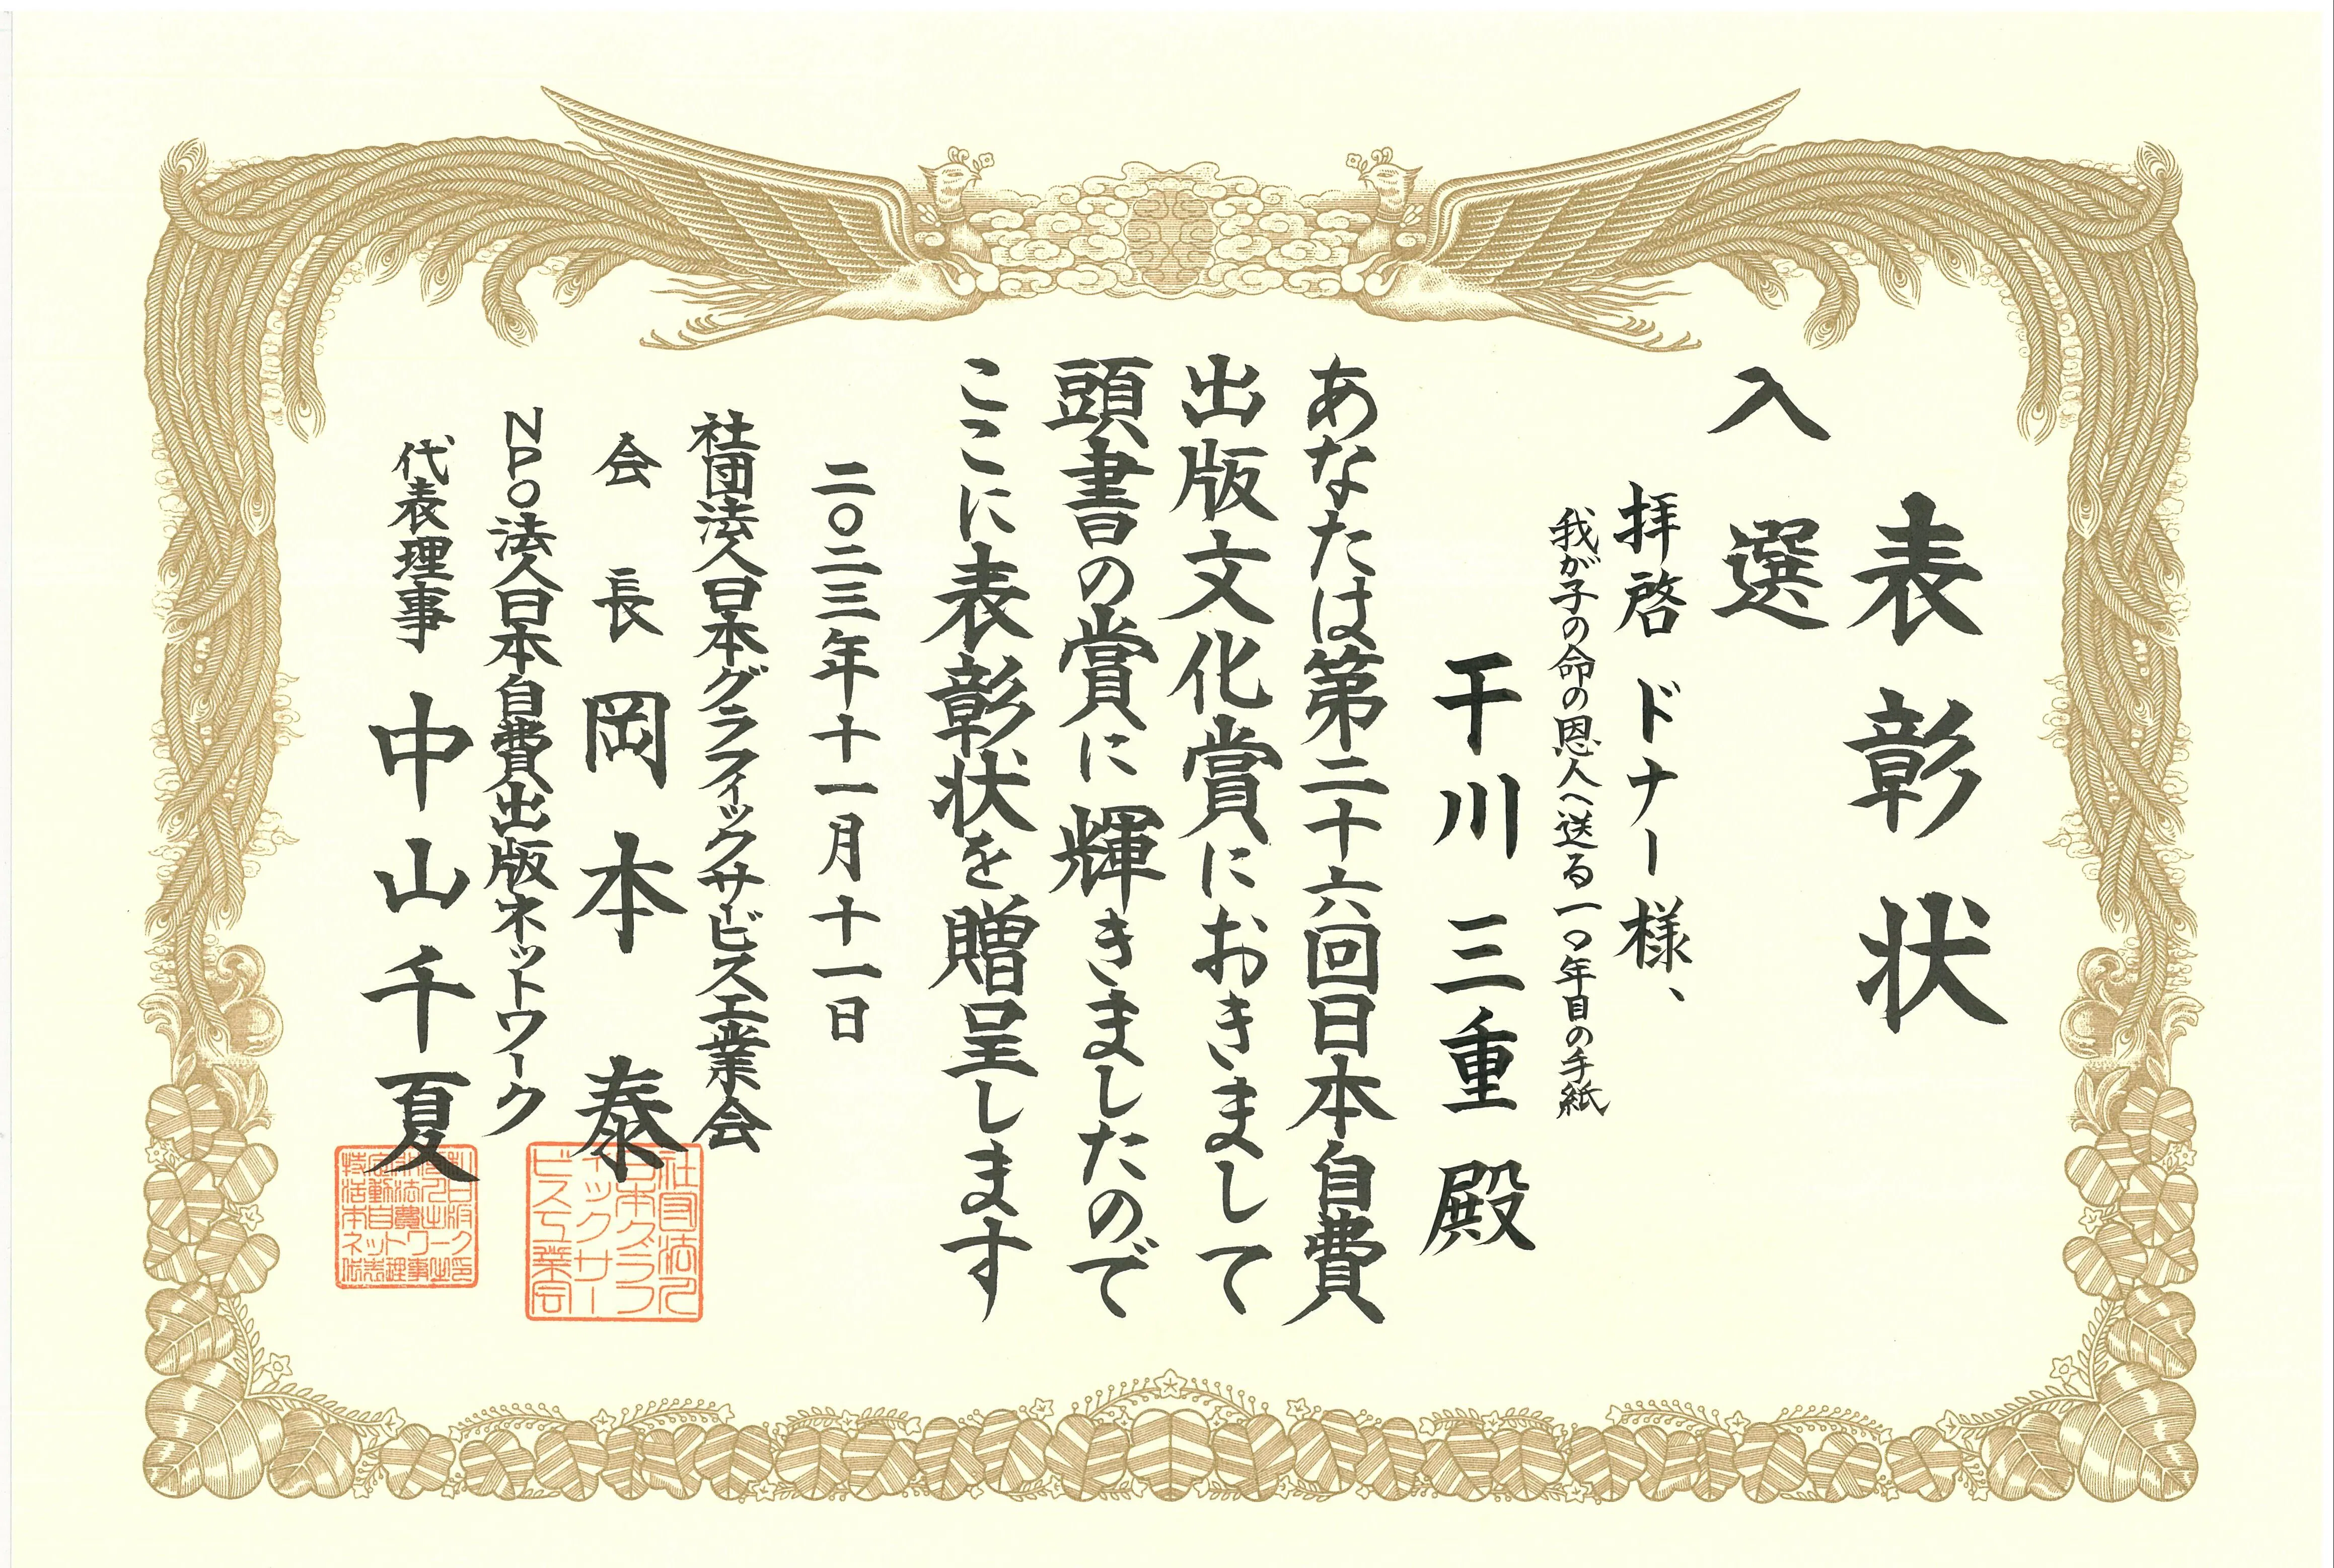 表彰状
入選
拝啓 ドナー様、
我が子の命の恩人へ送る一〇年目の手紙
干川三重 殿
あなたは第二十六回日本自費
出版文化賞におきまして
頭書の賞に輝きましたので
ここに表彰状を贈呈します
二〇二三年十一月十一日
社団法人日本グラフィックサービス工業会
会長 岡本 泰
NPO法人日本自費出版ネットワーク
代表理事 中山千夏
社団法人
日本グラフ
ィックサー
ビス工業会